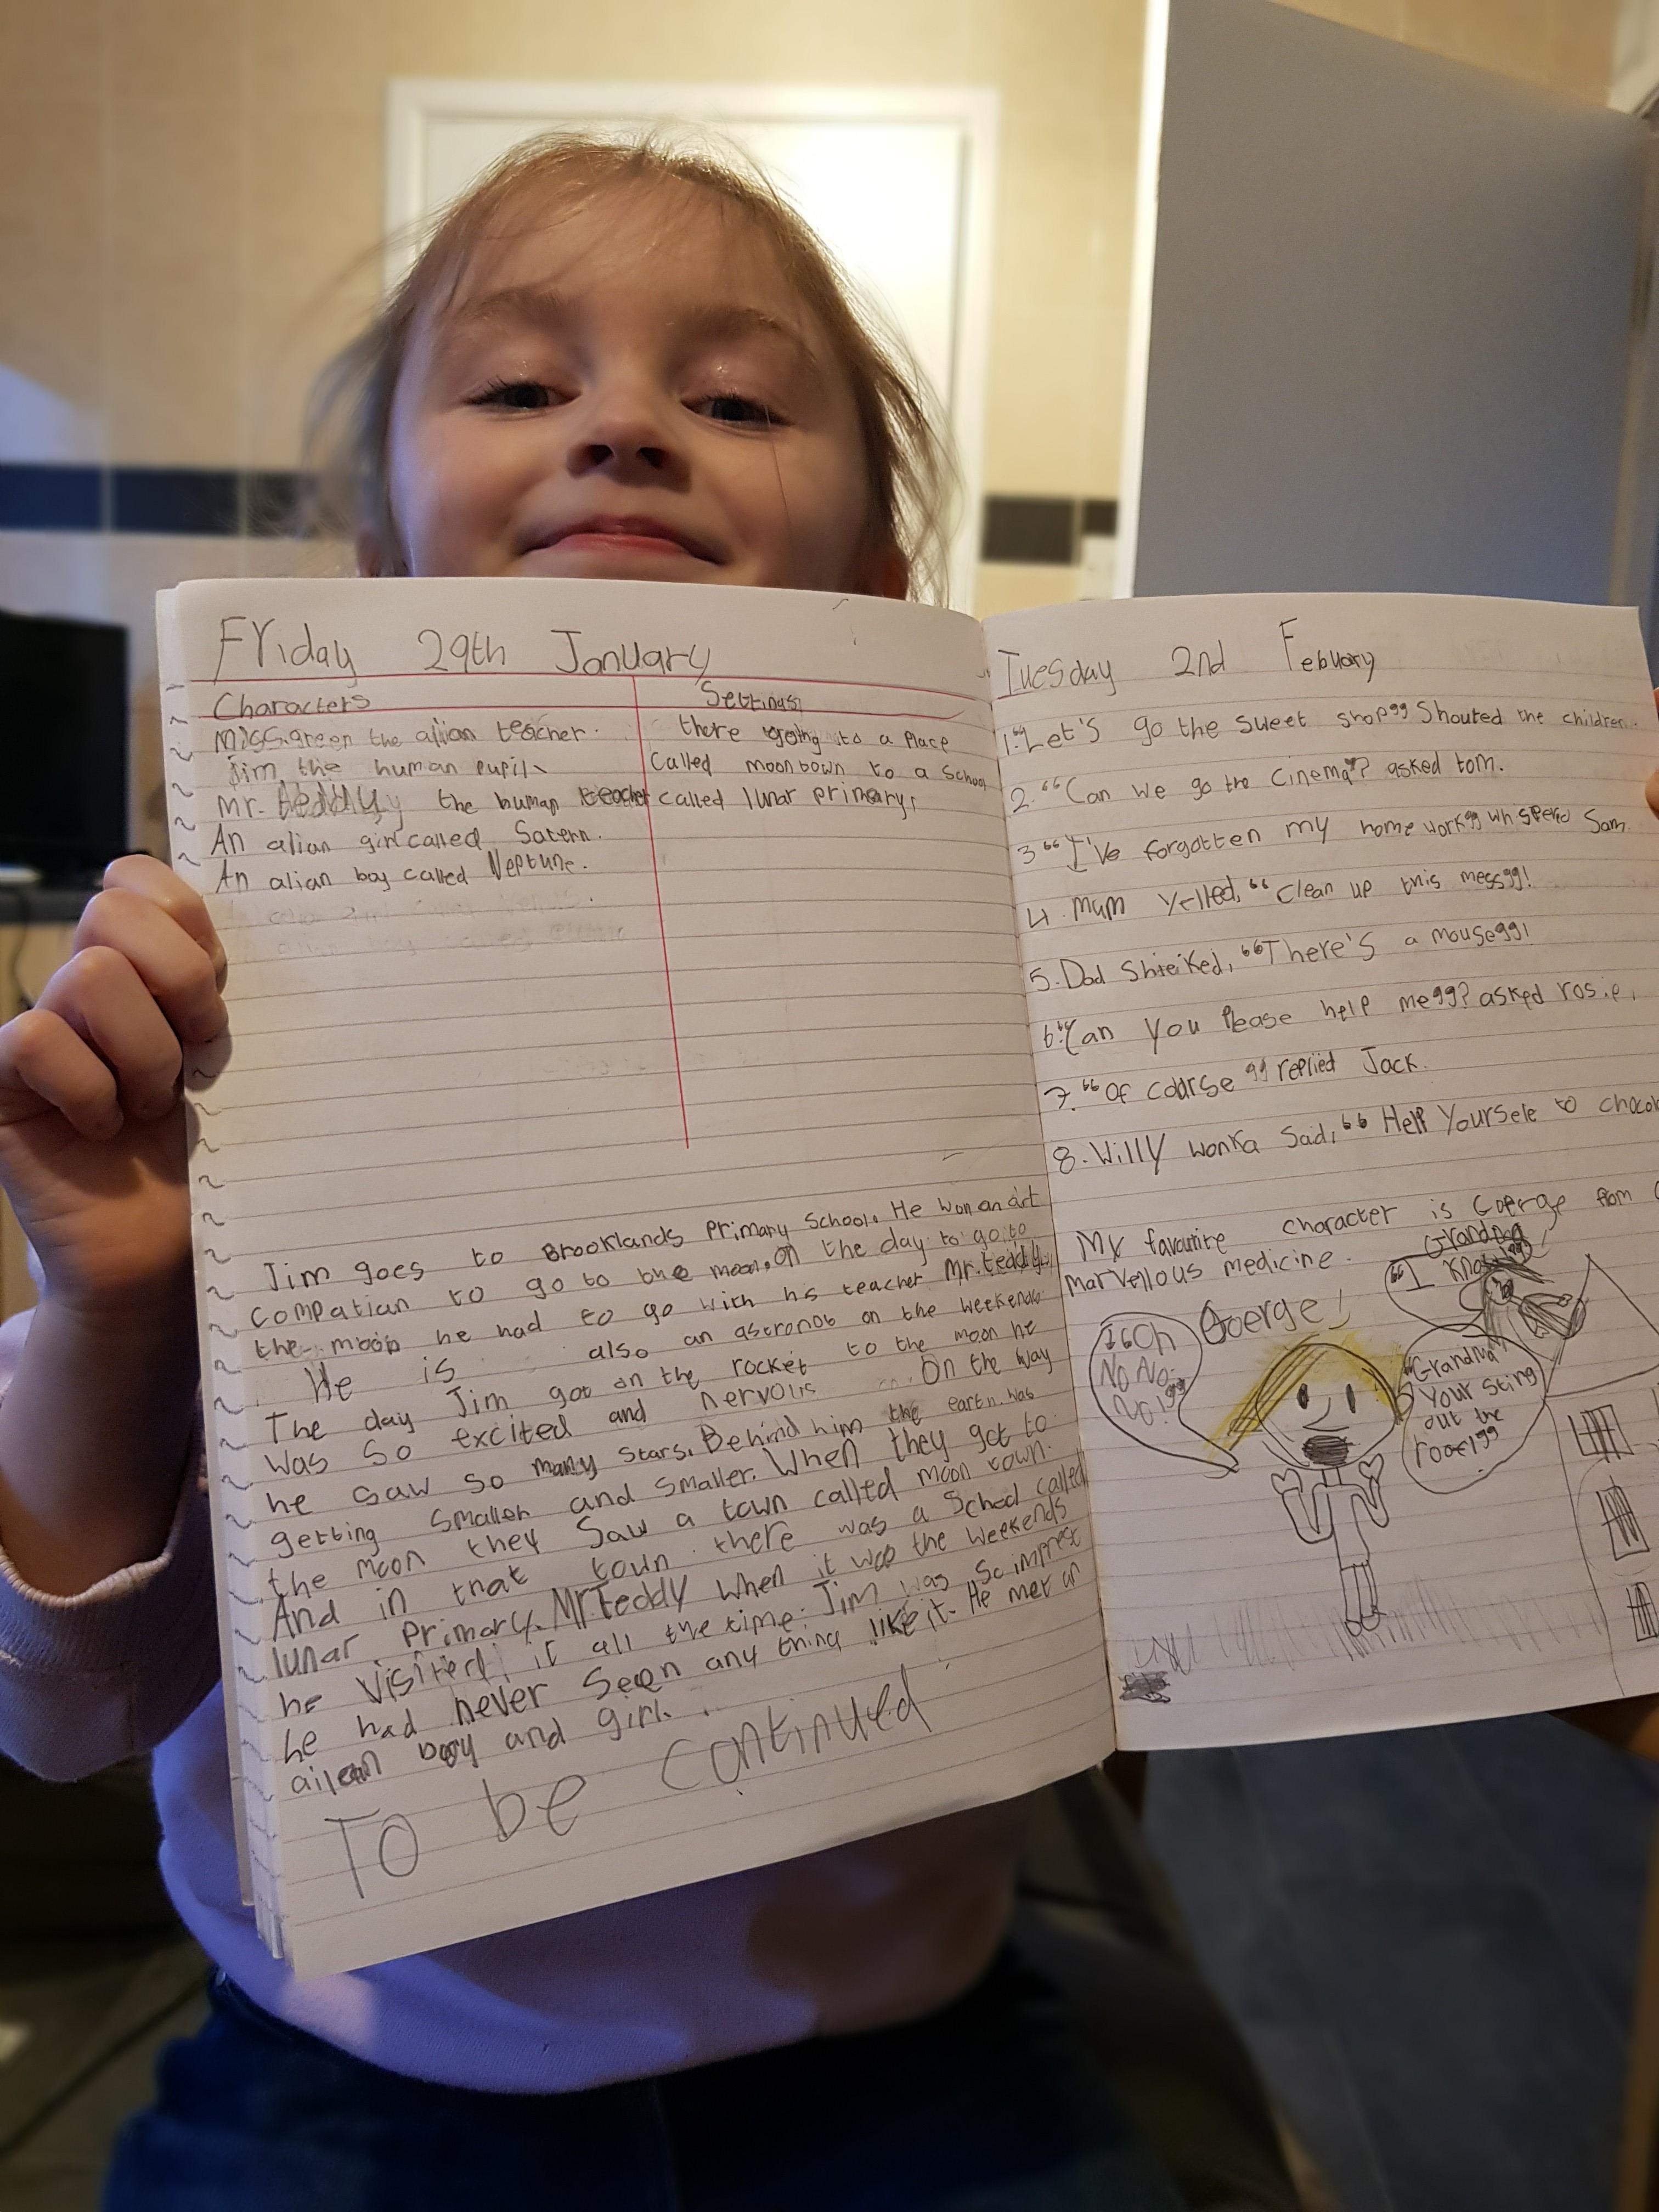 Friday 29th January
Characters
Settings
Miss.green the alian teacher.
Jim the human pupil
Mr. teddy the human teacher
An alian girl called Satern.
An alian boy called Neptune.
there going to a place
called moontown to a School
called lunar primary,
Jim goes to Brooklands Primary School. He won an art
Compatian to go to the moon. On the day to go to
the moon he had to go with his teacher Mr. teddy.
He is also an astronot on the weekends
The day Jim got on the rocket to the moon he
was so excited and nervous On the way
he saw so many stars. Behind him the earth was
getting smaller and smaller. When they got to
the moon they saw a town called moon town.
And in that town there was a School called
lunar Primary. Mr teddy when it was the weekends
he visited it all the time. Jim was so imprest
he had never seen any thing like it. He met an
ailean boy and girl.
To be continued
Tuesday 2nd Febuary
1. “Let's go the sweet shop” Shouted the children.
2. “Can we go the cinema”? asked tom.
3 “I've forgotten my home work” whisperd Sam.
4. Mum Yelled, “Clean up this mess”!
5. Dad Shreiked, “There's a mouse”!
6. “Can you Please help me”? asked rosie.
7. “Of coarse” replied Jack.
8. Willy wonka Said, “Help Yourself to
My favourite character is Goerge from
marvellous medicine.
Goerge!
“Oh
No No
No!”
Grandma
“I Know”
“Grandma
Your
out the